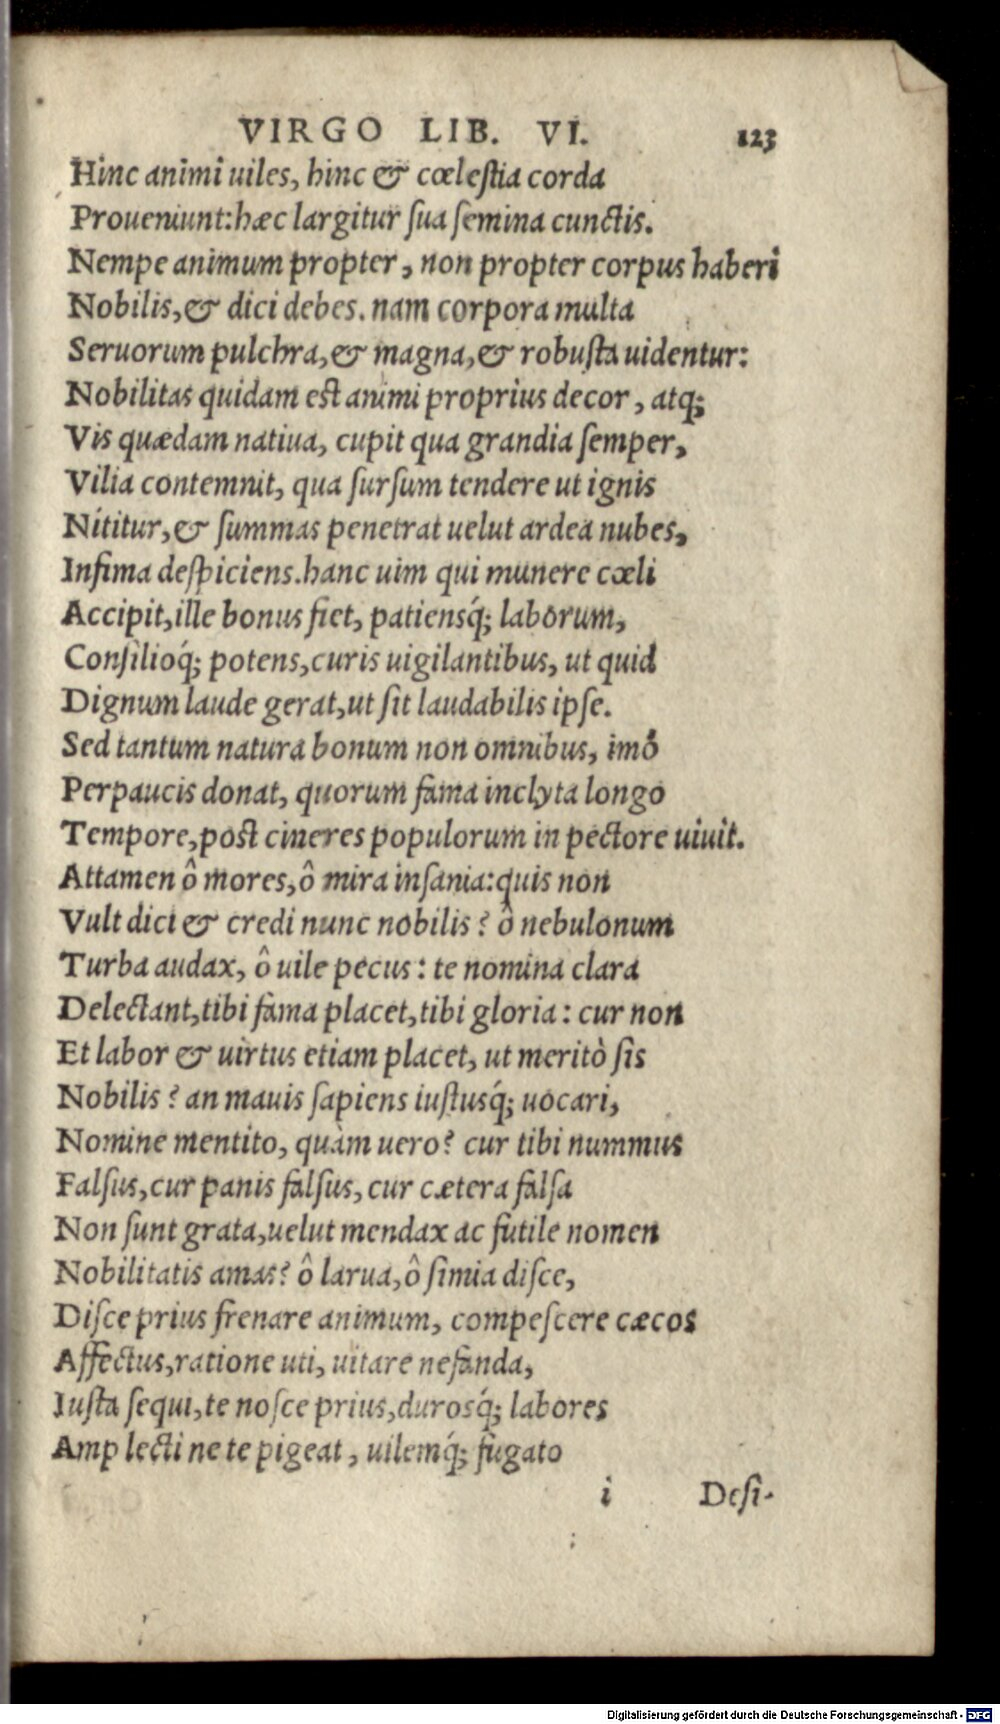 VIRGO LIB. VI. 123
Hinc animi uiles, hinc & cœlestia corda
Proueniunt: hæc largitur sua semina cunctis.
Nempe animum propter, non propter corpus haberi
Nobilis, & dici debes. nam corpora multa
Seruorum pulchra, & magna, & robusta uidentur:
Nobilitas quidam est animi proprius decor, atq;
Vis quædam natiua, cupit qua grandia semper,
Vilia contemnit, qua sursum tendere ut ignis
Nititur, & summas penetrat uelut ardea nubes,
Infima despiciens. hanc uim qui munere cœli
Accipit, ille bonus fiet, patiensq́; laborum,
Consilioq́; potens, curis uigilantibus, ut quid
Dignum laude gerat, ut sit laudabilis ipse.
Sed tantum natura bonum non omnibus, imò
Perpaucis donat, quorum fama inclyta longo
Tempore, post cineres populorum in pectore uiuit.
Attamen ô mores, ô mira insania: quis non
Vult dici & credi nunc nobilis? ô nebulonum
Turba audax, ô uile pecus: te nomina clara
Delectant, tibi fama placet, tibi gloria: cur non
Et labor & uirtus etiam placet, ut meritò sis
Nobilis? an mauis sapiens iustusq́; uocari,
Nomine mentito, quàm uero? cur tibi nummus
Falsus, cur panis falsus, cur cætera falsa
Non sunt grata, uelut mendax ac futile nomen
Nobilitatis amas? ô larua, ô simia disce,
Disce prius frenare animum, compescere cæcos
Affectus, ratione uti, uitare nefanda,
Iusta sequi, te nosce prius, durosq́; labores
Amplecti ne te pigeat, uilemq́; fugato
i Desi-
Digitalisierung gefördert durch die Deutsche Forschungsgemeinschaft - DFG